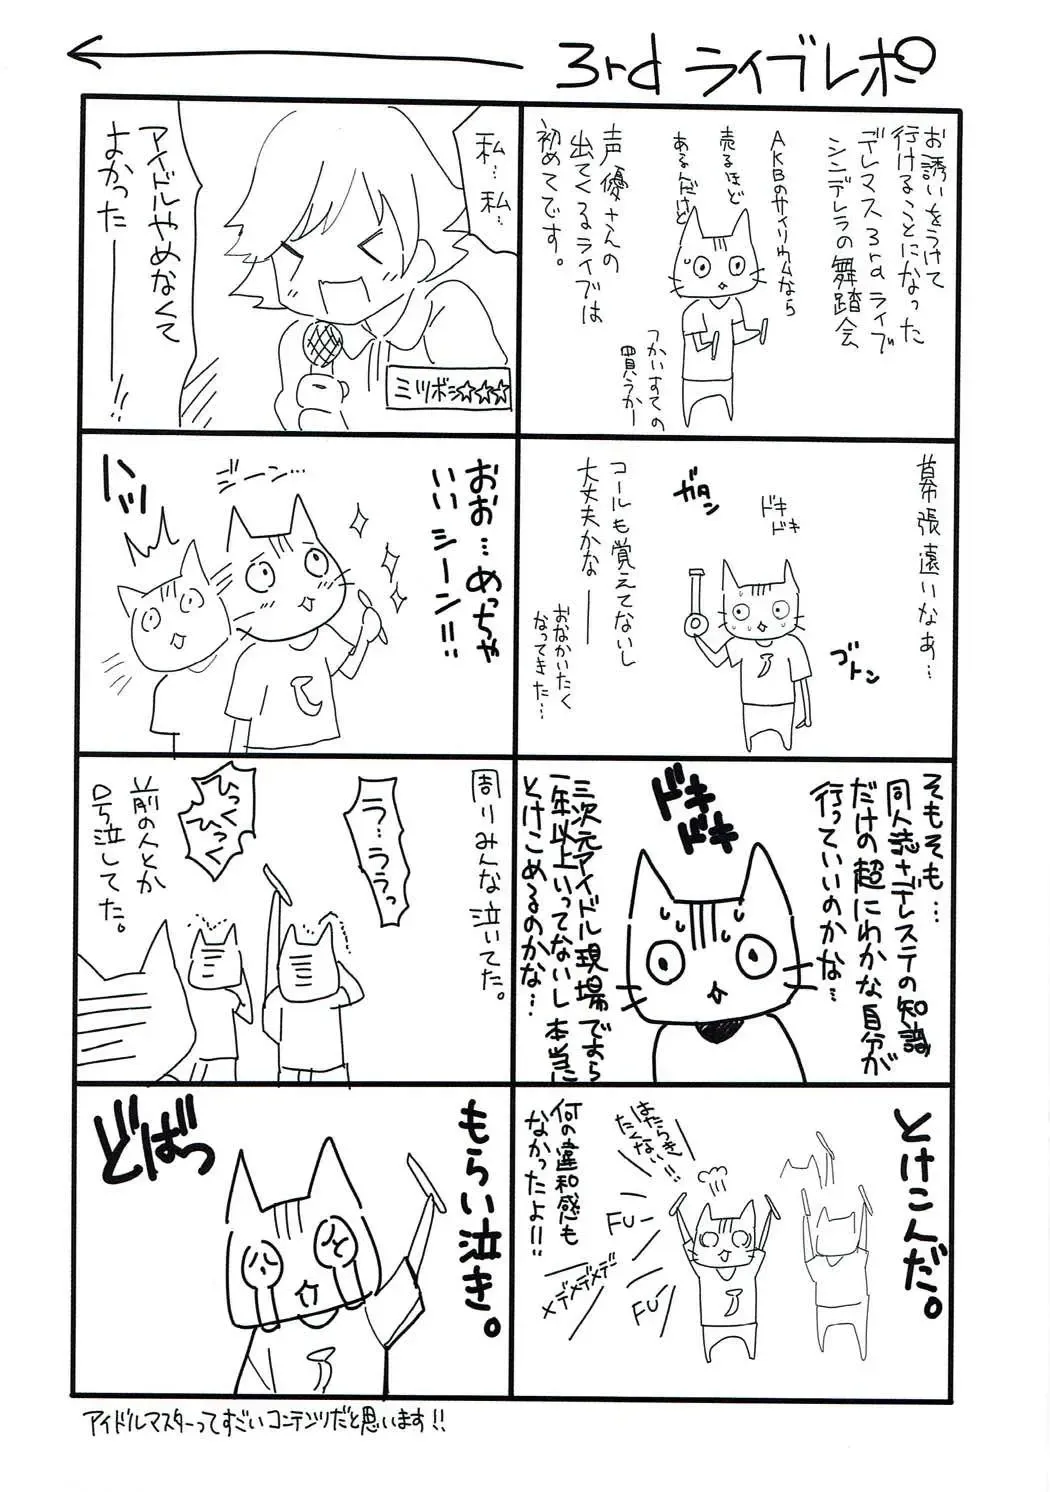 3rd ライブレポ
お誘いをうけて
行けることになった
デレマス3rdライブ
シンデレラの舞踏会
AKBのサイリウムなら
売るほど
あるんだけど
声優さんの
出てくるライブは
初めてです。
つかいすての
買うかー
幕張遠いなぁ…
ドキ
ドキ
ガタン
ゴトン
コールも覚えてないし
大丈夫かな――
おなかいたく
なってきた…
そもそも…
同人誌+デレステの知識
だけの超にわかな自分が
行っていいのかな…
ドキ
ドキ
三次元アイドル現場ですら
一年以上いってないし本当に
とけこめるのかな…
とけこんだ。
はたらき
たくない!!
FU-
FU-
メデメデメデ
何の違和感も
なかったよ!!
私…私…
アイドルやめなくて
よかった――!!
ミツボシ☆☆☆
おお…めっちゃ
いいシーン!!
ジーン…
ハッ
周りみんな泣いてた。
う…ううっ
ひっく
ひっく
前の人とか
号泣してた。
もらい泣き。
どばっ
アイドルマスターってすごいコンテンツだと思います!!